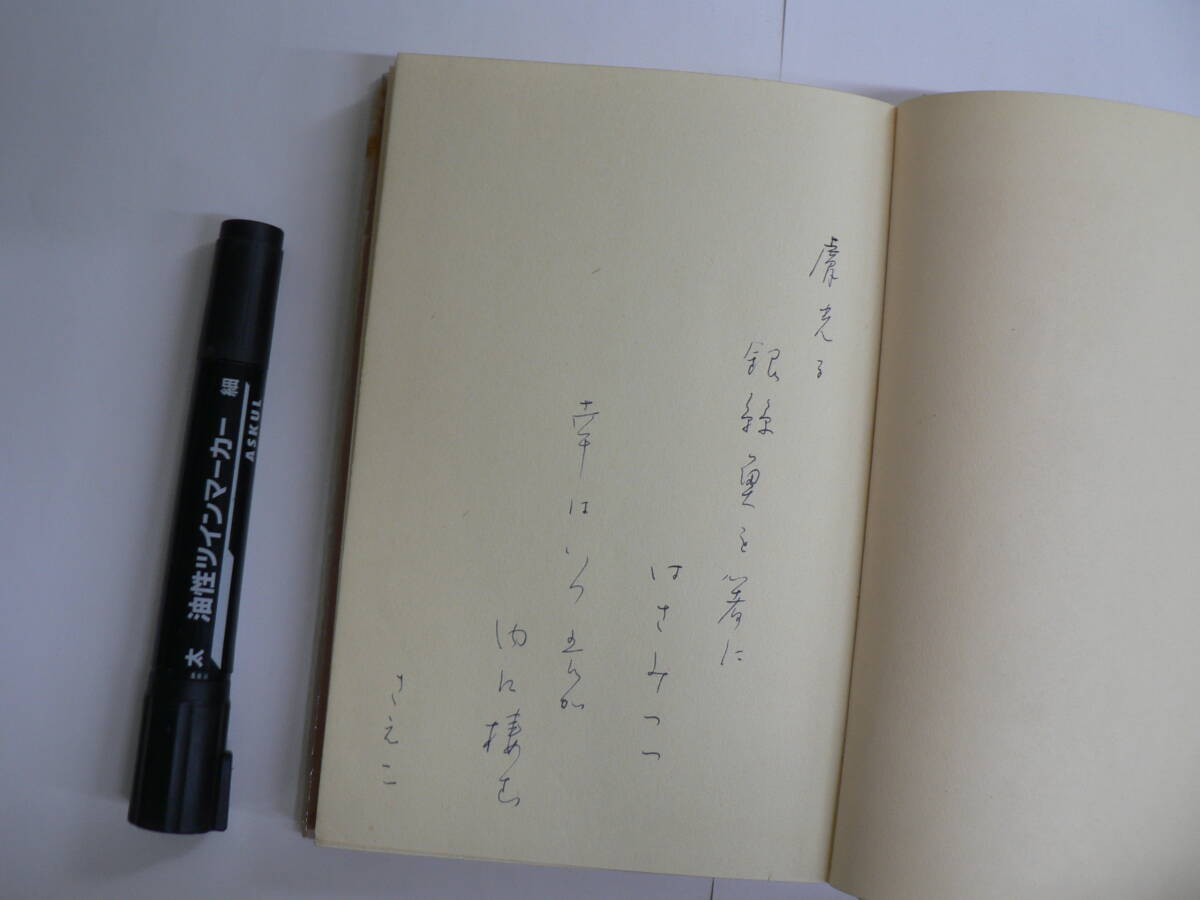 膚光る
銀絲魚を箸に
はさみつつ
幸はいつ吾が
内に棲む
さえこ
太 油性ツインマーカー 細
ASKUL